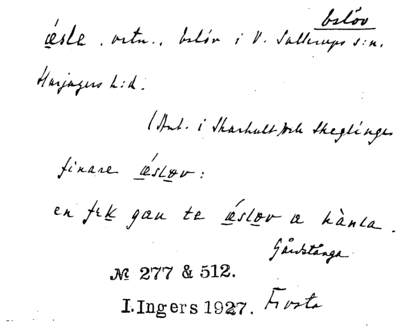 Eslöv
ésle. ortn., Eslöv i V. Sallerups s:n,
Harjagers h:d.
(Ant. i Skarhult och Skeglinge
finare éslov:
en fek gæn te éslov a hànla.
Gårdstånga
№ 277 & 512.
I. Ingers 1927. Frosta